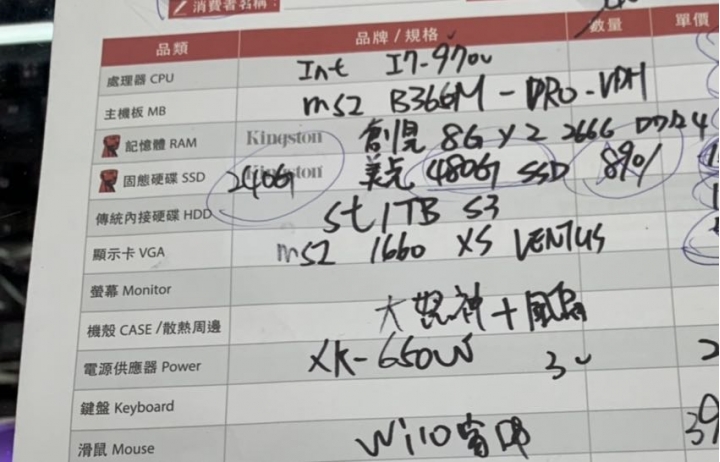 消費者名稱：
品類 品牌/規格 數量 單價
處理器 CPU Int I7-9700
主機板 MB MSI B366M-PRO-VDH
記憶體 RAM Kingston 創見 8G × 2 2666 DDR4
固態硬碟 SSD Kingston 240G 美光 480G SSD 890
傳統內接硬碟 HDD St 1TB S3
顯示卡 VGA MSI 1660 XS VENTUS
螢幕 Monitor
機殼 CASE/散熱周邊 大怒神+風扇
電源供應器 Power XK-650W
鍵盤 Keyboard
滑鼠 Mouse Win10